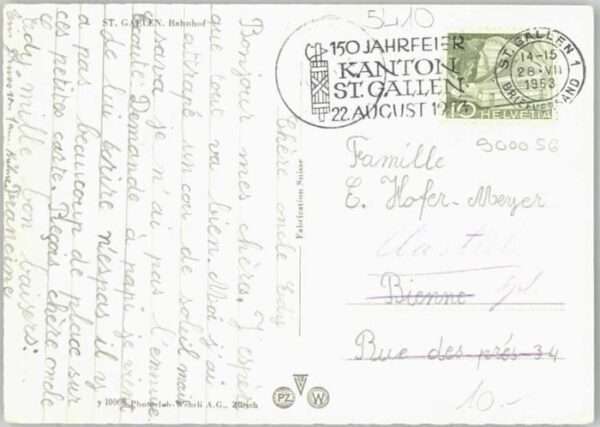 ST. GALLEN. Bahnhof
5410
150 JAHRFEIER
KANTON
ST. GALLEN
22. AUGUST
ST. GALLEN 1
14-15
28·VII
1953
BRIEFVERSAND
HELVETIA
9000 56
Chère oncle Edy
Bonjour mes chèrs. J'espère
que tout va bien. Moi j'ai
attrapé un cou de soleil mais
sava je n'ai pas l'ennuie.
Demande à papi je vien
lui écrire n'espas il y
a pas beaucoup de place sur
ces petites carte. Reçois chère oncle
Edy mille bon baisers.
Francine
Famille
E. Hofer-Meyer
Bienne
Rue des prés 34
10.-
Fabrication Suisse
Photoglob-Wehrli A.G., Zürich
PZ
W